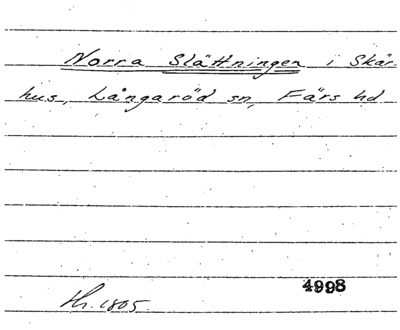 Norra Slättningen i Skär-
hus, Långaröd sn, Färs hd
4998
Hr. 1805.